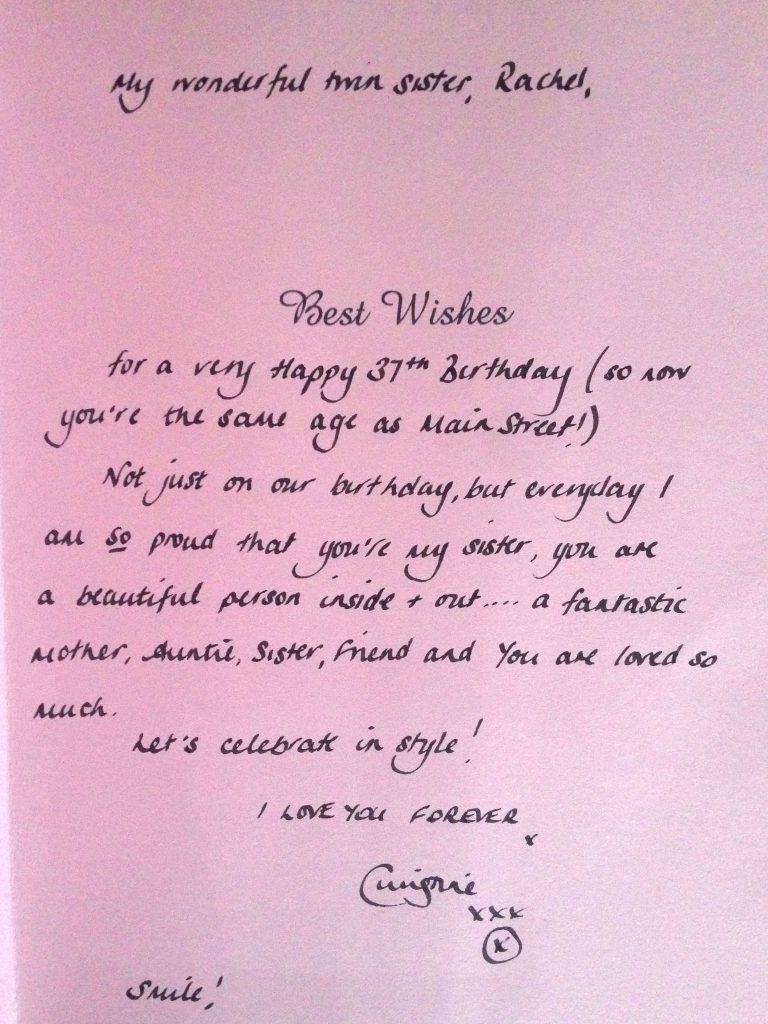 My wonderful twin sister, Rachel,
Best Wishes
for a very Happy 37th Birthday (so now
you're the same age as Main Street!)
Not just on our birthday, but everyday I
am so proud that you're my sister, you are
a beautiful person inside + out.... a fantastic
Mother, Auntie, Sister, Friend and You are loved so
much.
Let's celebrate in style!
I LOVE YOU FOREVER
x
xxx
x
Smile!